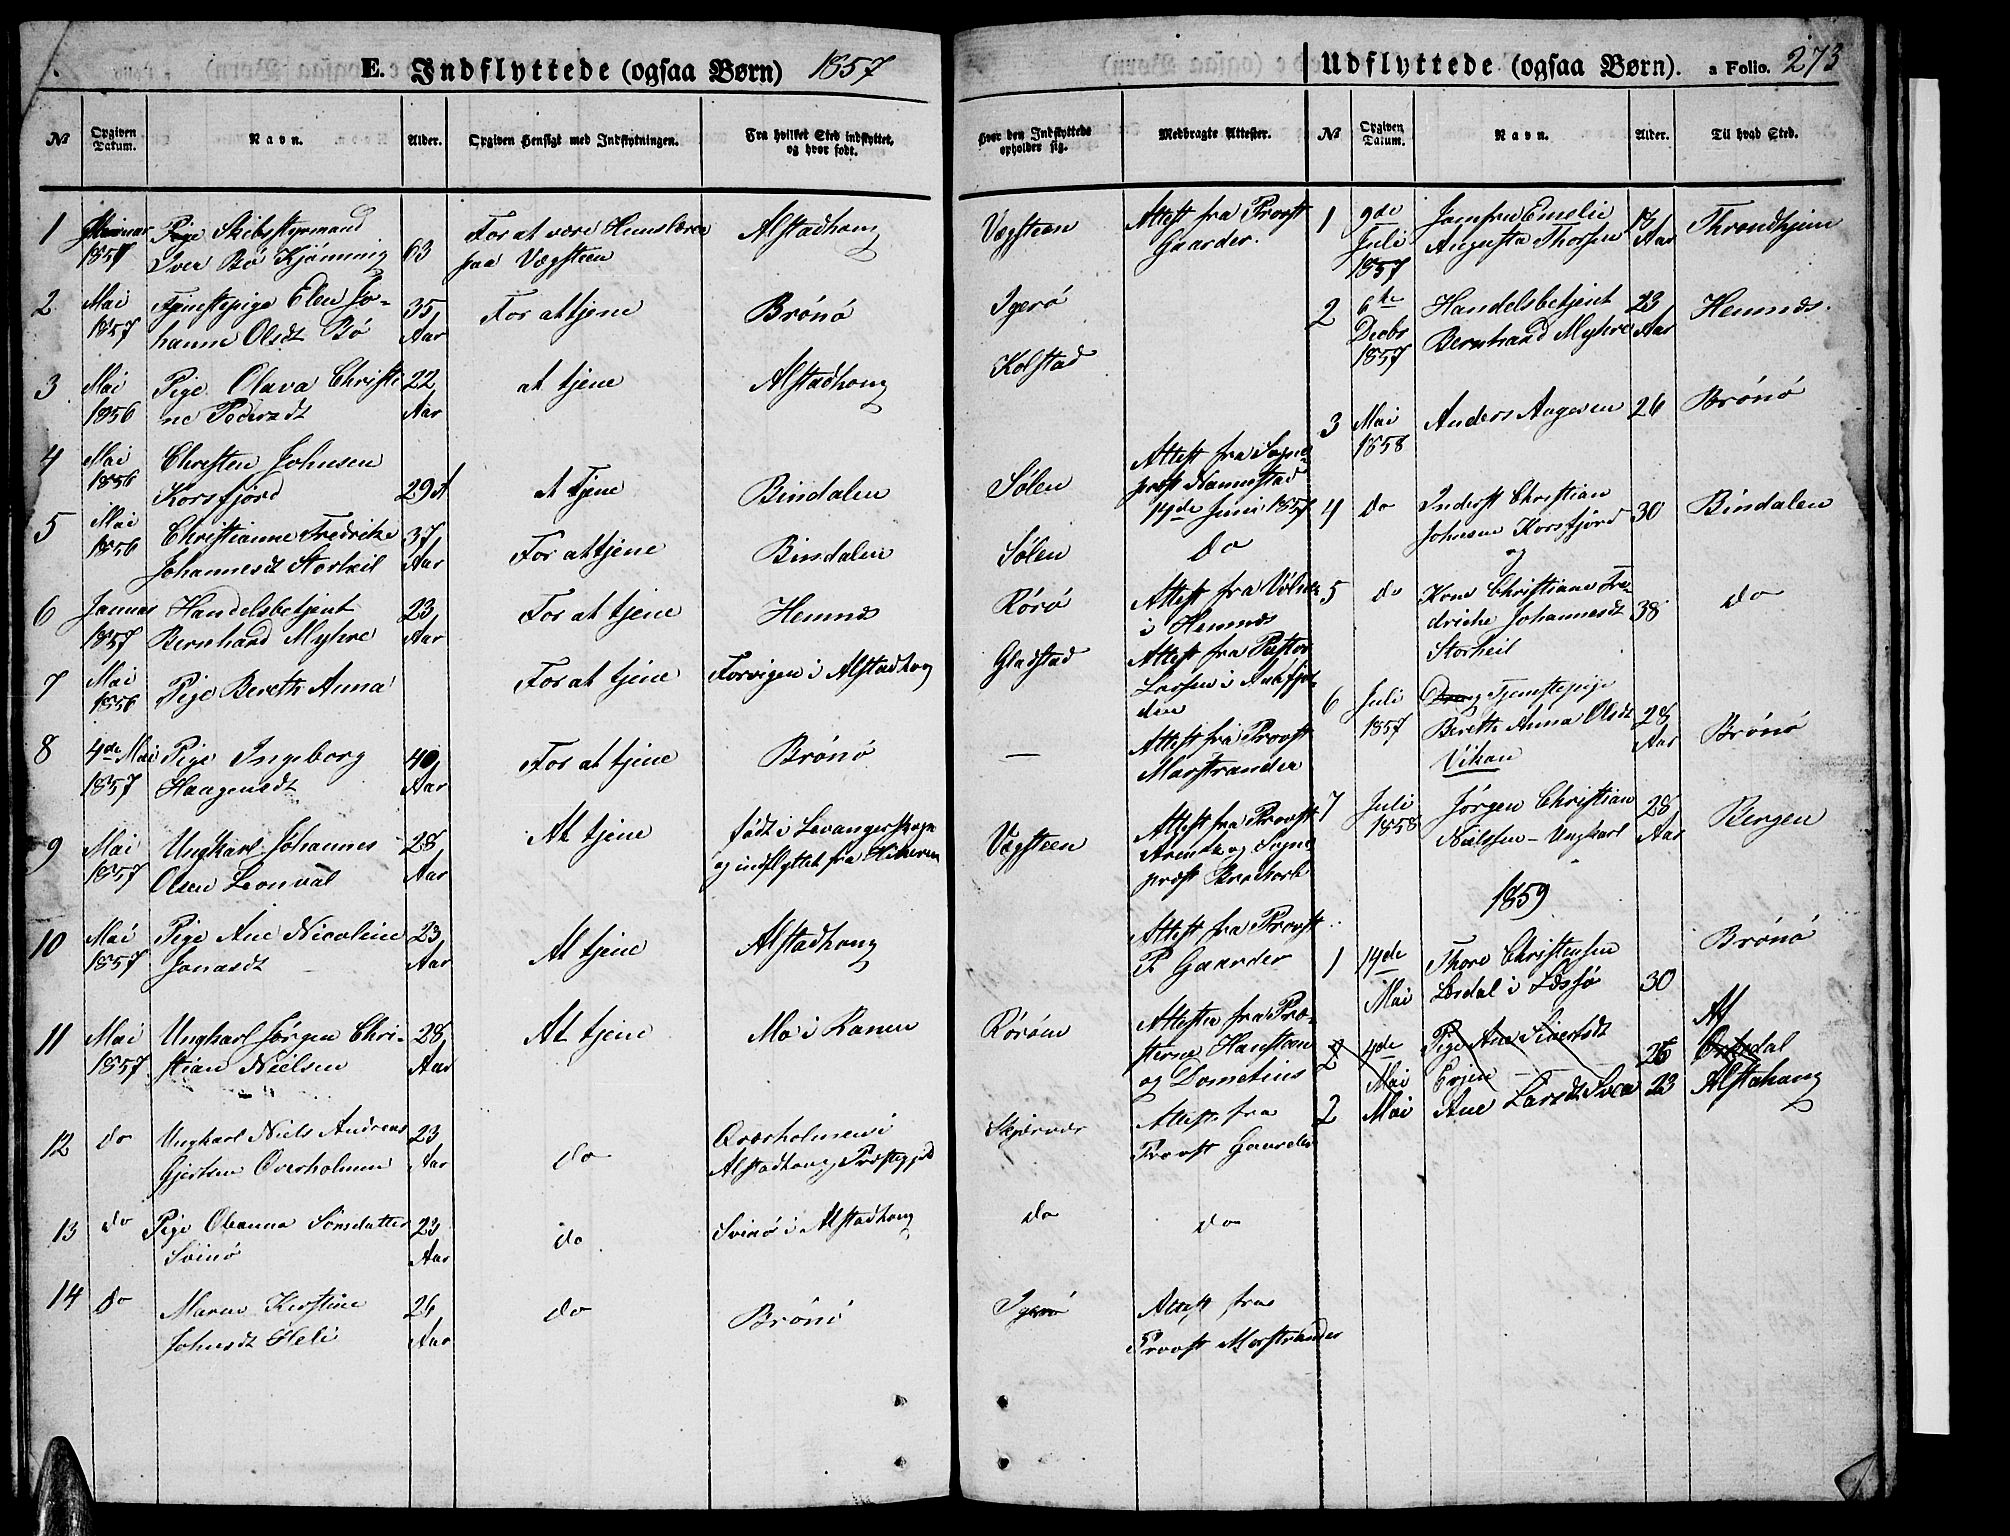 E. Indflyttede (ogsaa Børn) 1857
№ Opgiven Datum. Navn. Alder. Opgiven Hensigt med Indflytningen. Fra hvilket Sted indflyttet, og hvor født.
1 Januar 1857 Pige Skibsstyrmand Iver Bø Kjønning 63 For at være Huuslærer paa Vægsteen Alstadhoug
2 Mai 1857 Tjenstepige Elen Johanne Olsdt Bø 35 Aar For at tjene Brønø
3 Mai 1856 Pige Olava Christine Pedersdt 22 Aar at tjene Alstadhoug
4 Mai 1856 Christen Johnsen Korsfjord 29 at tjene Bindalen
5 Mai 1856 Christianne Fredrikke Johannesdt Storheil 37 Aar For at tjene Bindalen
6 Januar 1857 Handelsbetjent Bernhard Myhre 23 Aar For at tjene Hemnæs
7 Mai 1856 Pige Bereth Anna For at tjene Forvigen i Alstadhoug
8 4de Mai 1857 Pige Ingeborg Haagensdt 40 Aar For at tjene Brønø
9 Mai 1857 Ungkarl Johannes Olsen 28 Aar At tjene født i Levanger og indflyttet fra
10 Mai 1857 Pige Ane Nicoline Jonasdt 23 Aar At tjene Alstadhoug
11 Mai 1857 Ungkarl Jørgen Christian Nielsen 28 Aar At tjene Mo i Ranen
12 do Ungkarl Niels Andreas Gjertsen Qværholmen 23 Aar do Qværholmen i Alstadhoug Præstegjeld
13 do Pige Oleanna Simsdatter Svinø 23 Aar do Svinø i Alstadhoug
14 do Maren Kirstine Johnsdt Heli 26 Aar do Brønø
Hvor den Indflyttede opholder sig. Medbragte Attester.
Vægsteen Attest fra Provst Gaarder.
Igerø
Kolstad
Sølen Attest fra Sogneprest 14de Juni 1857
Sølen do
Rørø Attest fra i Hemnæs
Gladstad Attest fra Pastor Larsen i
— Attest fra Provst Marstrander
Vægsteen Attest fra Provst og Sogneprest
Attest fra Provst P. Gaarder
Rørøen Attester fra Præsterne Hansteen og
Skjærvær Attest fra Provst Gaarder
do do
Igerø Attest fra Provst Marstrander
Udflyttede (ogsaa Børn). a Folio. 273
№ Opgiven Datum. Navn. Alder. Til hvad Sted.
1 9de Juli 1857 Jomfru Emelie Augusta Thorsen 17 Aar Throndhjem
2 6te Decbr 1857 Handelsbetjent Bernhard Myhre 23 Aar Hemnæs.
3 Mai 1858 Anders Aagesen 26 Brønø
4 do Inderst Christian Johnsen Korsfjord og 30 Bindalen
5 do Kone Christiane Fredriche Johannesdt Storheil 38 do
6 Juli 1857 Tjenstepige Bereth Anna Olsdt Vikan 28 Aar Brønø
7 Juli 1858 Jørgen Christian Nielsen - Ungkarl 28 Aar Bergen
1859
1 14de Mai Thore Christensen 30 Brønø
2 4de Mai Pige Ane Sivertsdt 25
2 Mai Ane Larsdt 23 Alstahaug